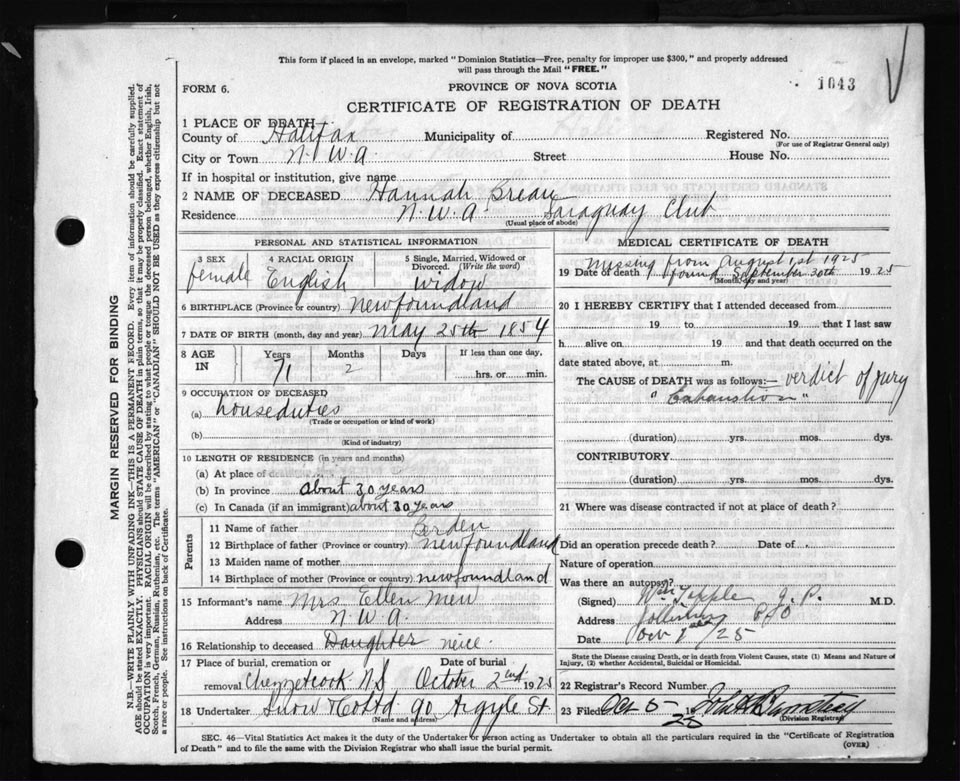 This form if placed in an envelope, marked "Dominion Statistics—Free, penalty for improper use $300," and properly addressed
will pass through the Mail "FREE."
FORM 6.
PROVINCE OF NOVA SCOTIA
1043
CERTIFICATE OF REGISTRATION OF DEATH
1 PLACE OF DEATH
County of Halifax Municipality of Registered No.
(For use of Registrar General only)
City or Town N.W.A. Street House No.
If in hospital or institution, give name
2 NAME OF DECEASED Hannah Breau
Residence N.W.A. Saraguay Club
(Usual place of abode)
PERSONAL AND STATISTICAL INFORMATION
3 SEX
female
4 RACIAL ORIGIN
English
5 Single, Married, Widowed or
Divorced. (Write the word)
widow
6 BIRTHPLACE (Province or country) Newfoundland
7 DATE OF BIRTH (month, day and year) May 25th 1854
8 AGE
IN
Years
71
Months
2
Days
If less than one day,
hrs. or min.
9 OCCUPATION OF DECEASED
(a) houseduties
(Trade or occupation or kind of work)
(b)
(Kind of industry)
10 LENGTH OF RESIDENCE (in years and months)
(a) At place of death
(b) In province about 30 years
(c) In Canada (if an immigrant) about 30 years
Parents
11 Name of father Borden
12 Birthplace of father (Province or country) Newfoundland
13 Maiden name of mother
14 Birthplace of mother (Province or country) Newfoundland
15 Informant's name Mrs Ellen Mew
Address N.W.A.
16 Relationship to deceased Daughter neice
17 Place of burial, cremation or Date of burial
removal Chezzetcook N.S October 2nd 1925
18 Undertaker Snow & Co Ltd 90 Argyle St.
(Name and address)
MEDICAL CERTIFICATE OF DEATH
Missing from August 1st 1925
19 Date of death found September 30th 1925
(Month, day and year)
20 I HEREBY CERTIFY that I attended deceased from
19 to 19 that I last saw
h alive on 19 and that death occurred on the
date stated above, at m.
The CAUSE of DEATH was as follows:— verdict of jury
"Exhaustion"
(duration) yrs. mos. dys.
CONTRIBUTORY.
(duration) yrs. mos. dys.
21 Where was disease contracted if not at place of death?
Did an operation precede death? Date of
Nature of operation
Was there an autopsy?
(Signed) J.P. M.D.
Address P.O
Date Oct 1st /25
State the Disease causing Death, or in death from Violent Causes, state (1) Means and Nature of
Injury, (2) whether Accidental, Suicidal or Homicidal.
22 Registrar's Record Number
23 Filed Oct 5 19 25
(Division Registrar)
SEC. 46—Vital Statistics Act makes it the duty of the Undertaker or person acting as Undertaker to obtain all the particulars required in the "Certificate of Registration
of Death" and to file the same with the Division Registrar who shall issue the burial permit.
(OVER)
MARGIN RESERVED FOR BINDING
N.B.—WRITE PLAINLY WITH UNFADING INK—THIS IS A PERMANENT RECORD. Every item of information should be carefully supplied.
AGE should be stated EXACTLY. PHYSICIANS should STATE CAUSE OF DEATH in plain terms, so that it may be properly classified. Exact statement of
OCCUPATION is very important. RACIAL ORIGIN will be described by stating to what people or tongue the deceased person belonged, whether English, Irish,
Scotch, French, German, Russian, Ruthenian, etc. The terms "AMERICAN" or "CANADIAN" SHOULD NOT BE USED as they express citizenship but not
a race or people. See instructions on back of Certificate.